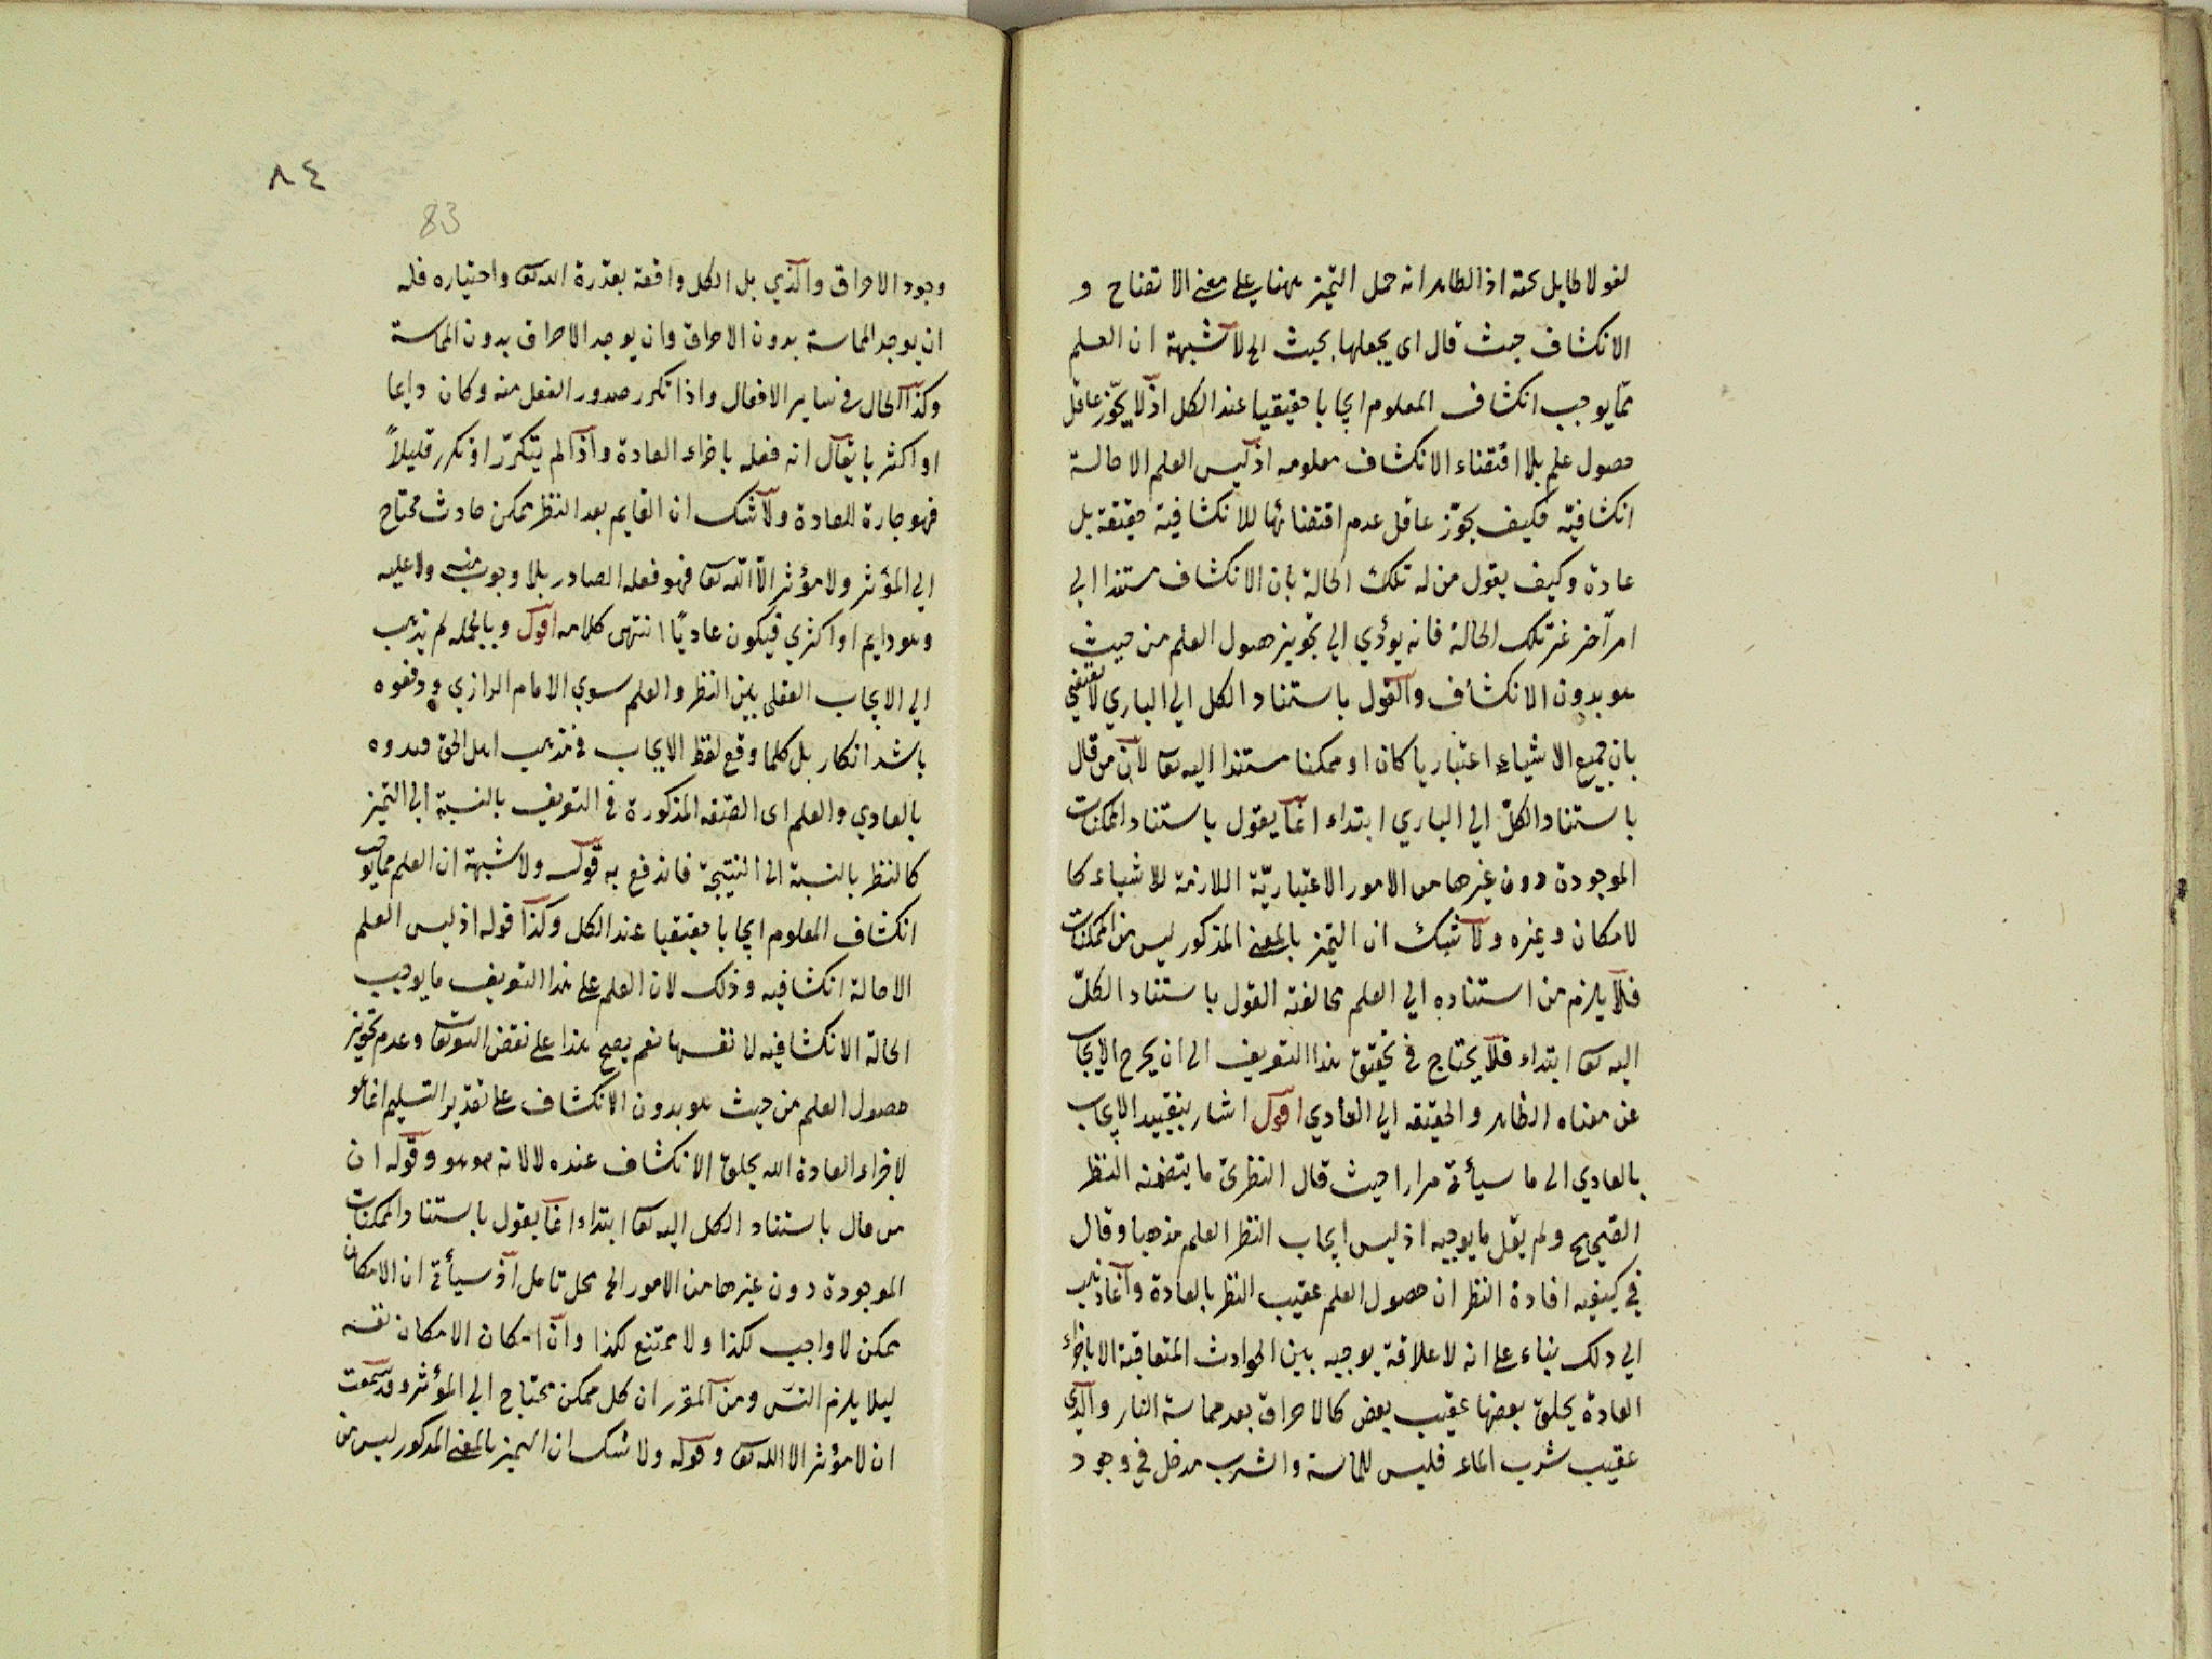 لغو لا طايل تحته اذ الظاهر انه حمل التميز ههنا على معنى الاتضاح و
الانكشاف حيث قال اى يجعلها بحيث الخ لا شبهة ان العلم
مما يوجب انكشاف المعلوم ايجابا حقيقيا عند الكل اذ لا يجوّز عاقل
حصول علم بلا اقتضاء الانكشاف معلومه اذ ليس العلم الا حالة
انكشافية فكيف يجوّز عاقل عدم اقتضائها للانكشافية حقيقة بل
عادة وكيف يقول من له تلك الحالة بان الانكشاف مستندا الي
امر آخر غير تلك الحالة فانه يؤدي الي تجويز حصول العلم من حيث
هو بدون الانكشاف والقول باستناد الكل الي الباري لا يقتضي
بان جميع الاشياء اعتباريا كان او ممكنا مستندا اليه تعا لان من قال
باستناد الكلّ الي الباري ابتداء انما يقول باستناد الممكنات
الموجودة دون غيرها من الامور الاعتباريّة اللازمة للاشياء كا
لامكان وغيره ولا شك ان التميز بالمعنى المذكور ليس من الممكنات
فلا يلزم من استناده الي العلم مخالفة القول باستناد الكلّ
اليه تعا ابتداء فلا يحتاج في تحقيق هذا التعريف الى ان يخرج الايجاب
عن معناه الظاهر والحقيقه الي العادي اقول اشار بتقييد الايجاب
بالعادي الى ما سيأتي مرارا حيث قال النظرىّ ما يتضمنه النظر
الصحيح ولم يقل ما يوجبه اذ ليس ايجاب النظر العلم مذهبا وقال
في كيفيه افادة النظر ان حصول العلم عقيب النظر بالعادة وانما ذهب
الي ذلك بناء على انه لا علاقة يوجبه بين الحوادث المتعاقبة الا باجراء
العادة بخلق بعضها عقيب بعض كالاحراق بعد مماسة النار والرّي
عقيب شرب الماء فليس للمماسة والشرب مدخل في وجود
٨٤
83
وجود الاحراق والرّي بل الكل واقعة بقدرة الله تعا واختياره فله
ان يوجد المماسة بدون الاحراق وان يوجد الاحراق بدون المماسة
وكذا الحال في ساير الافعال واذا تكرر صدور الفعل منه وكان دايما
او اكثريا يقال انه فعله باجراء العادة واذا لم يتكرّر او تكرر قليلاً
فهو خارق للعادة ولا شك ان العلم بعد النظر ممكن حادث محتاج
الي المؤثر ولا مؤثر الا الله تعا فهو فعله الصادر بلا وجوب منه ولا عليه
وهو دايم او اكثري فيكون عاديًا انتهى كلامه اقول وبالجمله لم يذهب
الي الايجاب العقلى بين النظر والعلم سوي الامام الرازي ودفعوه
باشد انكار بل كلما وقع لفظ الايجاب في مذهب اهل الحق قيدوه
بالعادي والعلم اى الصفه المذكورة في التعريف بالنسبة الي التميز
كالنظر بالنسبة الى النتيجة فاندفع به قوله ولا شبهة ان العلم مما يوجب
انكشاف المعلوم ايجابا حقيقيا عند الكل وكذا قوله اذ ليس العلم
الا حالة انكشافيه وذلك لان العلم على هذا التعريف ما يوجب
الحالة الانكشافيه لا نفسها نعم يصح هذا على بعض التعريفات وعدم تجويز
حصول العلم من حيث هو بدون الانكشاف على تقدير التسليم انما هو
لاجراء العادة الله بخلق الانكشاف عنده لا لانه هو هو وقوله ان
من قال باستناد الكل اليه تعا ابتداء انما يقول باستناد الممكنات
الموجودة دون غيرها من الامور الخ محل تامل اذ سيأتي ان الامكان
ممكن لا واجب لكذا ولا ممتنع لكذا وان امكان الامكان نفسه
ليلا يلزم التس ومن المقرر ان كل ممكن محتاج الي المؤثر وقد سمعت
ان لا مؤثر الا الله تعا وقوله ولا شك ان التميز بالمعنى المذكور ليس من